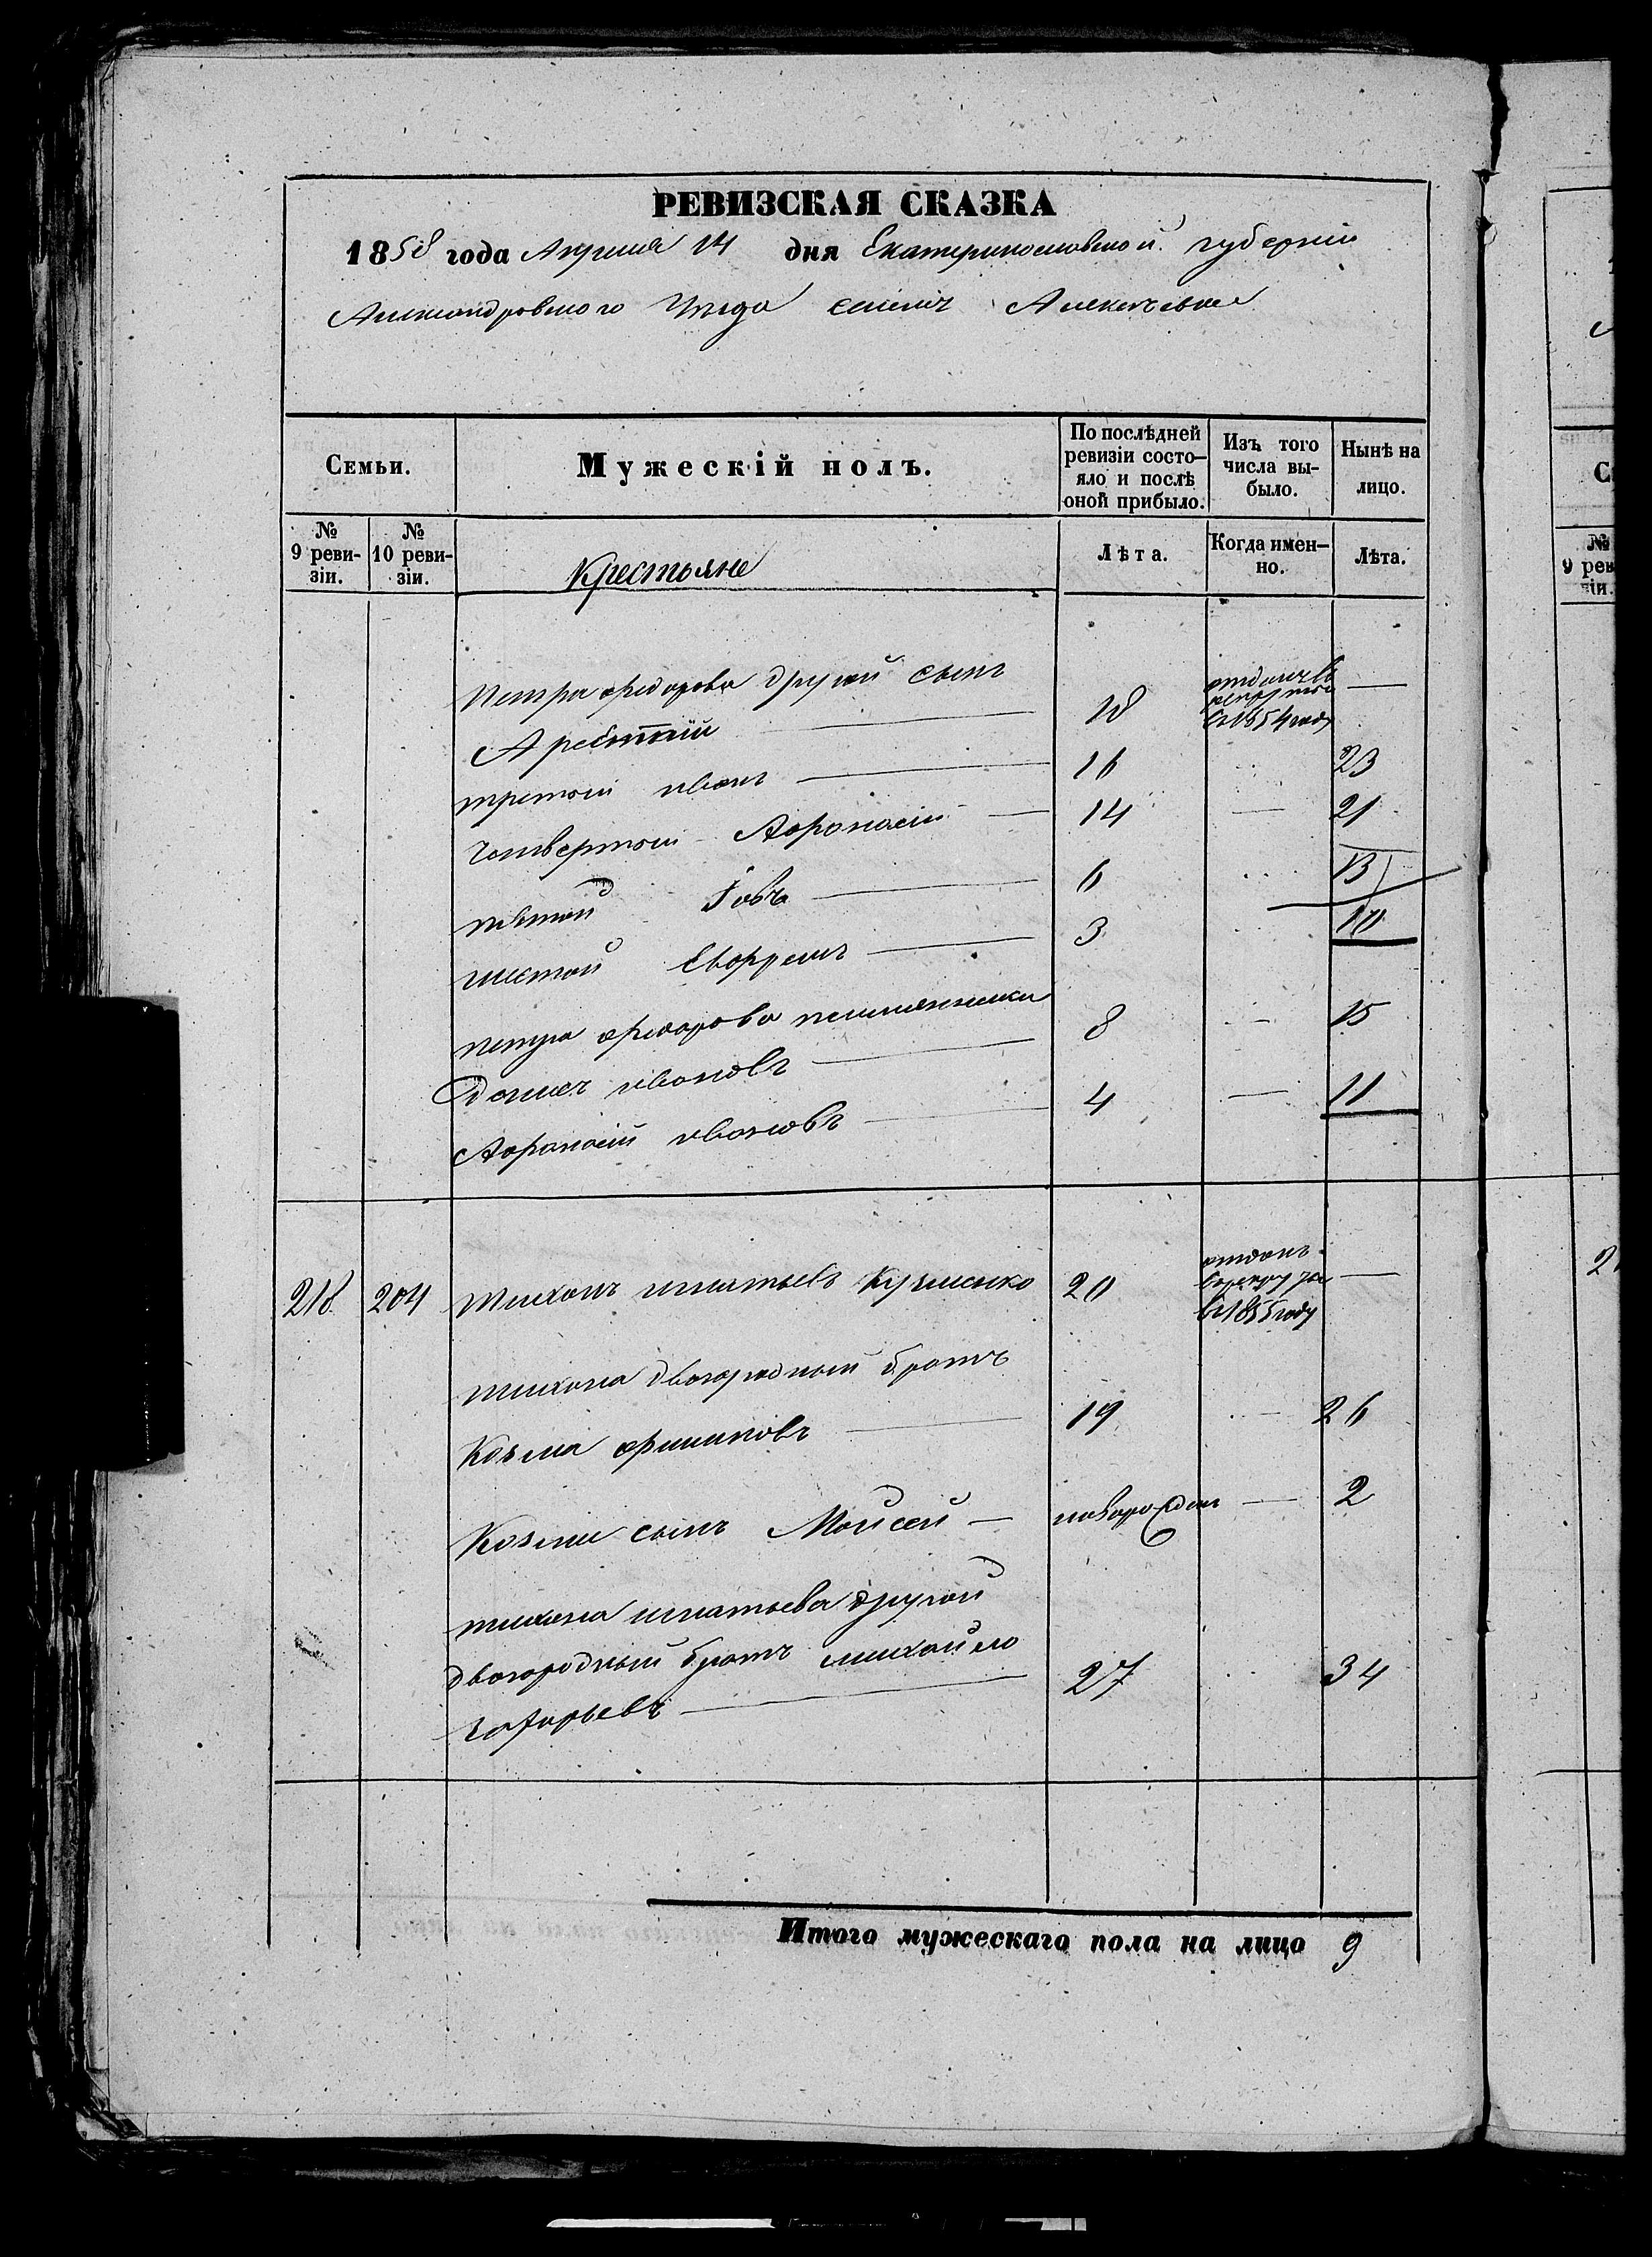 РЕВИЗСКАЯ СКАЗКА
1858 года Апреля 14 дня Екатеринославской губернiи
Александровского Уезда селенiя
Семьи.
Мужескiй полъ.
По послѣдней ревизiи состояло и послѣ оной прибыло.
Изъ того числа выбыло.
Нынѣ на лицо.
№ 9 ревизiи.
№ 10 ревизiи.
Крестьяне
Лѣта.
Когда именно.
Лѣта.
Петра федорова другой сынъ
18 отданъ въ рекруты въ 1854 году —
третiй иванъ — 16 23
четвертой Афонасiй — 14 — 21
пятой Iовъ — 6 13
шестой — 3 10
петра федорова племянники
ивановъ — 8 — 15
Афонасiй ивановъ — 4 — 11
218 204 Тихонъ игнатьевъ Кузменко 20 отданъ в рекруты въ 1855 году —
тихона двоюродный братъ
Козма — 19 — 26
Козми сынъ Мойсей — новорожден — 2
тихона игнатьева другой
двоюродный братъ михайло
григорьевъ — 27 34
Итого мужескаго пола на лицо 9
2
№
9 рев
зiи.